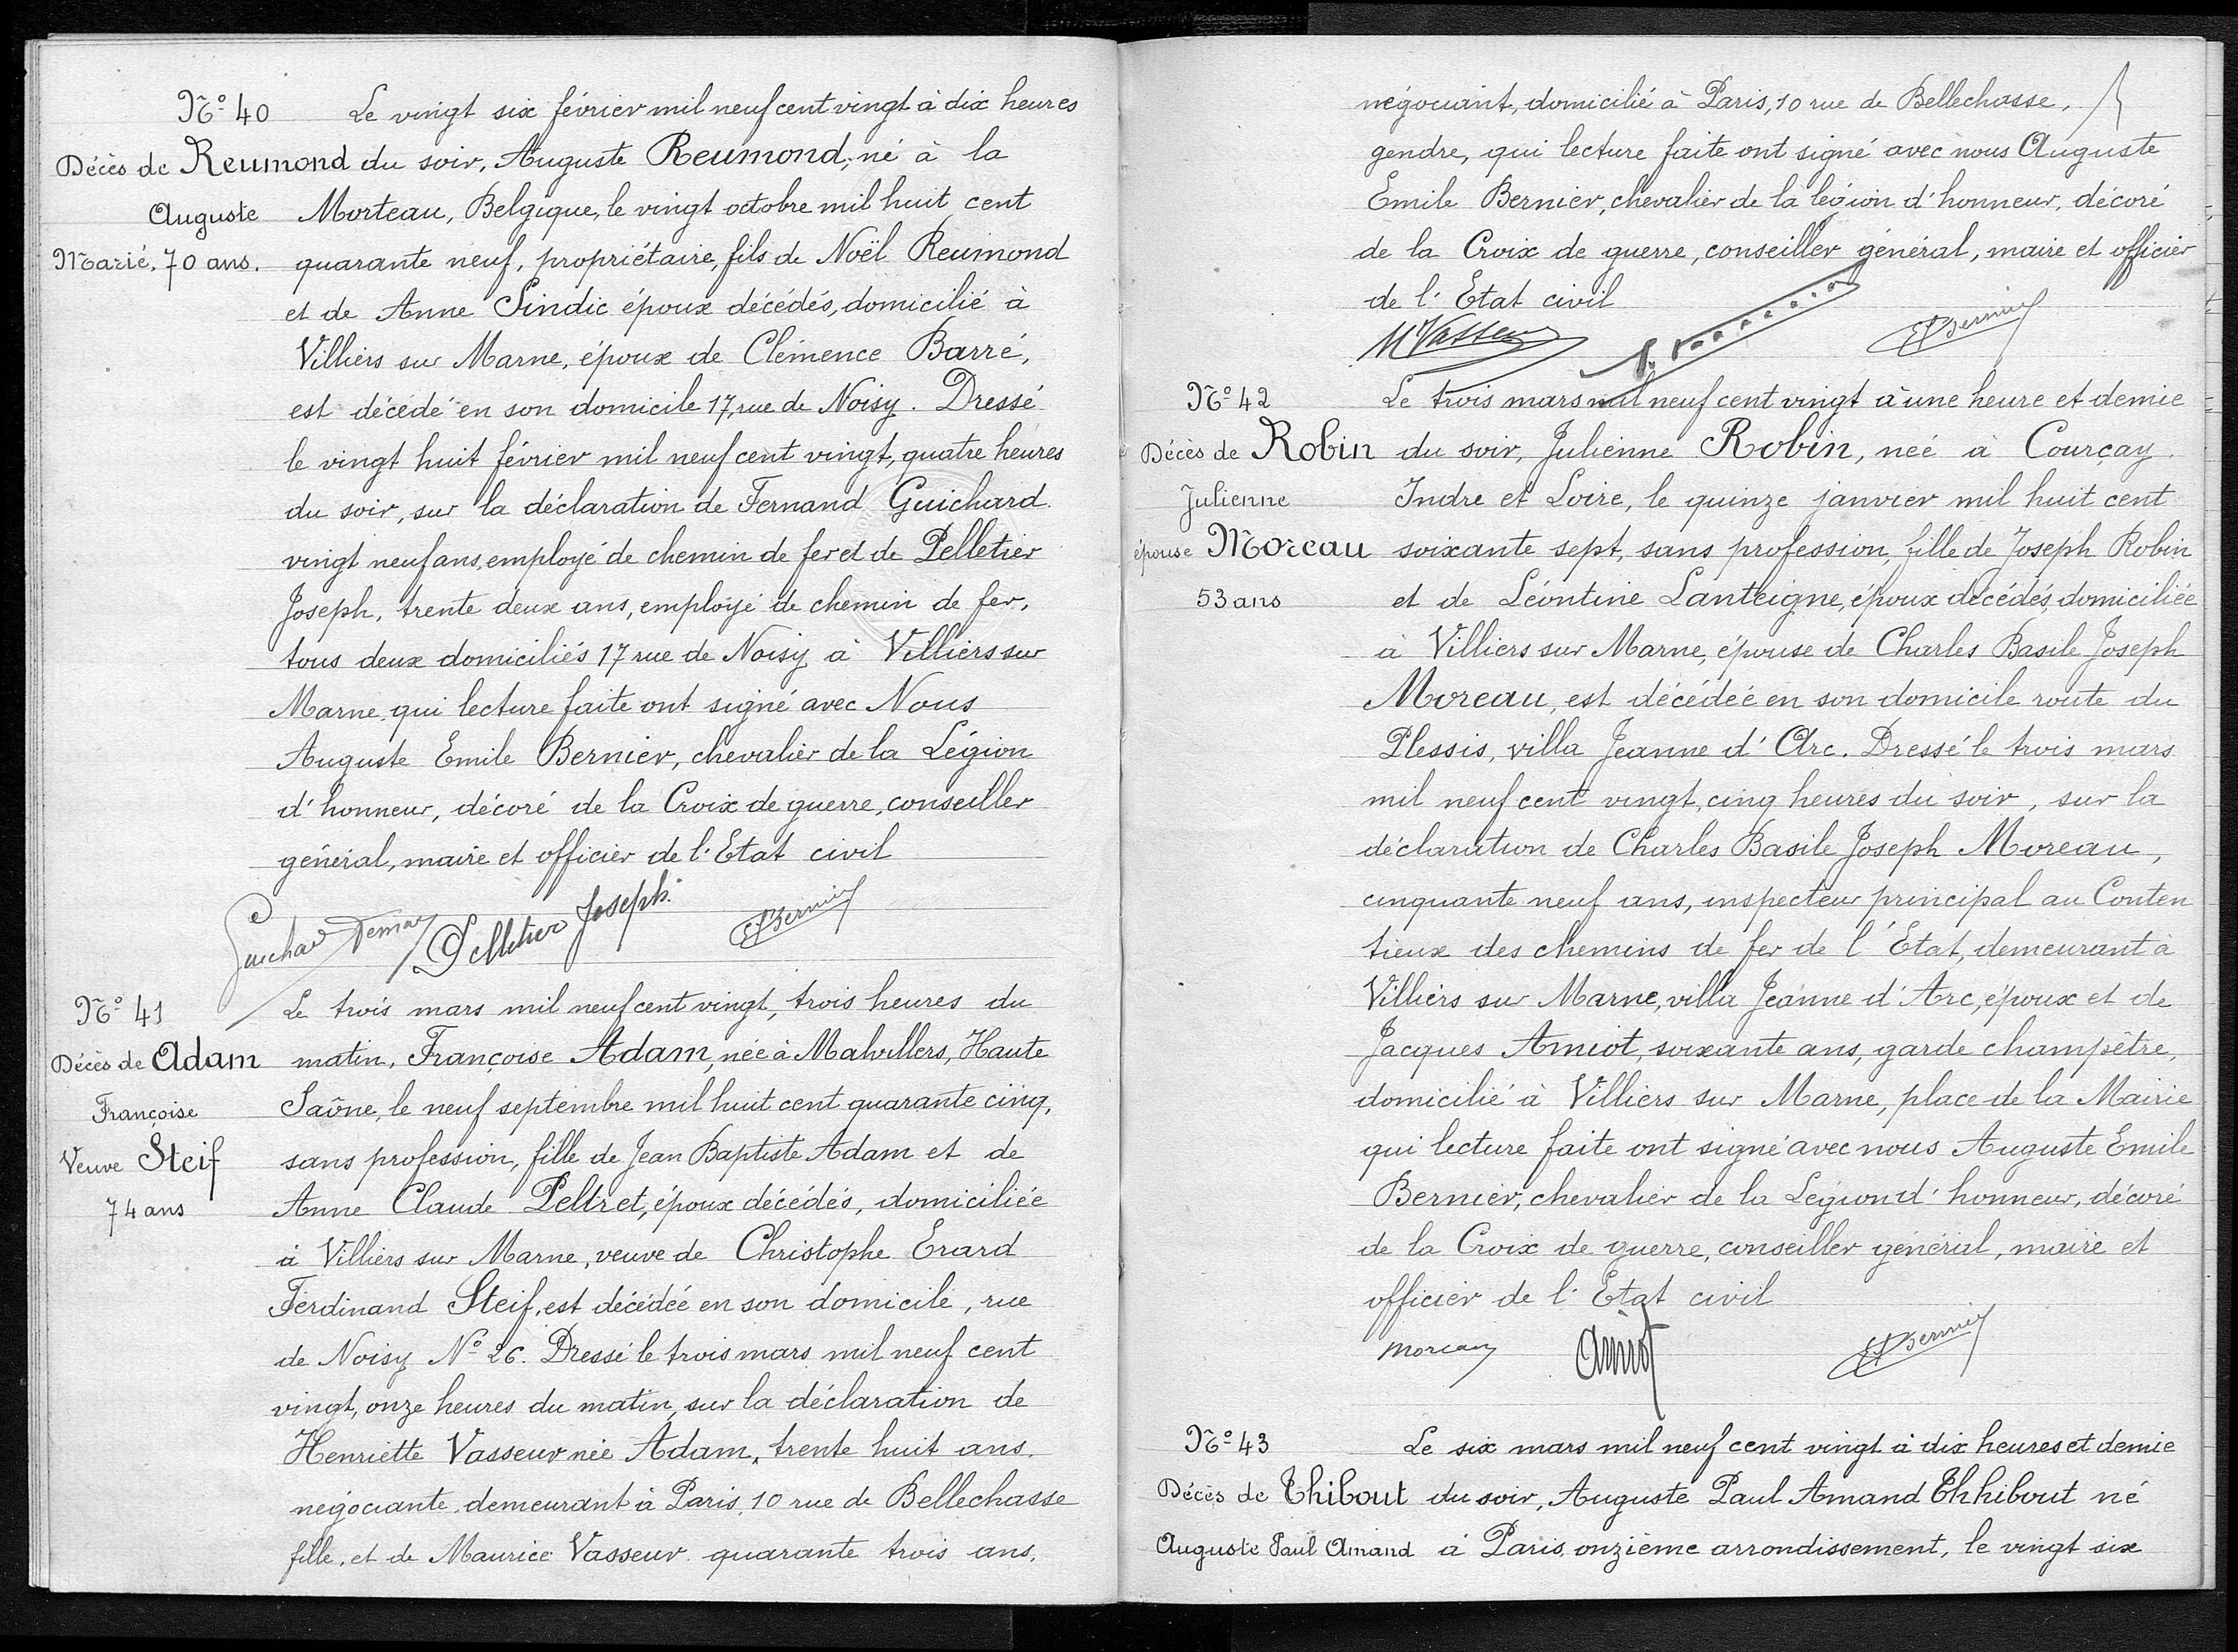 N° 40
Décès de Reumond
Auguste
Marié. 70 ans.
Le vingt six février mil neuf cent vingt à dix heures
du soir, Auguste Reumond, né à la
Morteau, Belgique, le vingt octobre mil huit cent
quarante neuf, propriétaire, fils de Noël Reumond
et de Anne Sindic époux décédés, domicilié à
Villiers sur Marne, époux de Clémence Barré,
est décédé en son domicile 17, rue de Noisy. Dressé
le vingt huit février mil neuf cent vingt, quatre heures
du soir, sur la déclaration de Fernand Guichard
vingt neuf ans, employé de chemin de fer et de Pelletier
Joseph, trente deux ans, employé de chemin de fer,
tous deux domiciliés 17 rue de Noisy à Villiers sur
Marne, qui lecture faite ont signé avec Nous
Auguste Emile Bernier, chevalier de la Légion
d'honneur, décoré de la Croix de guerre, conseiller
général, maire et officier de l'Etat civil
Pelletier Joseph
EABernier
N° 41
Décès de Adam
Françoise
Veuve Steif
74 ans
Le trois mars mil neuf cent vingt, trois heures du
matin, Françoise Adam, née à Malvillers, Haute
Saône, le neuf septembre mil huit cent quarante cinq,
sans profession, fille de Jean Baptiste Adam et de
Anne Claude Peltret, époux décédés, domiciliée
à Villiers sur Marne, veuve de Christophe Erard
Ferdinand Steif, est décédée en son domicile, rue
de Noisy N° 26. Dressé le trois mars mil neuf cent
vingt, onze heures du matin, sur la déclaration de
Henriette Vasseur née Adam, trente huit ans,
négociante, demeurant à Paris, 10 rue de Bellechasse
fille, et de Maurice Vasseur quarante trois ans,
négociant, domicilié à Paris, 10 rue de Bellechasse,
gendre, qui lecture faite ont signé avec nous Auguste
Emile Bernier, chevalier de la légion d'honneur, décoré
de la Croix de guerre, conseiller général, maire et officier
de l'Etat civil
MVasseur
EABernier
N° 42
Décès de Robin
Julienne
épouse Moreau
53 ans
Le trois mars mil neuf cent vingt à une heure et demie
du soir, Julienne Robin, née à Courçay
Indre et Loire, le quinze janvier mil huit cent
soixante sept, sans profession, fille de Joseph Robin
et de Léontine Lanteigne, époux décédés, domiciliée
à Villiers sur Marne, épouse de Charles Basile Joseph
Moreau, est décédée en son domicile route du
Plessis, villa Jeanne d'Arc. Dressé le trois mars
mil neuf cent vingt, cinq heures du soir, sur la
déclaration de Charles Basile Joseph Moreau,
cinquante neuf ans, inspecteur principal au Conten
tieux des chemins de fer de l'Etat, demeurant à
Villiers sur Marne, villa Jeanne d'Arc, époux et de
Jacques Amiot, soixante ans, garde champêtre,
domicilié à Villiers sur Marne, place de la Mairie
qui lecture faite ont signé avec nous Auguste Emile
Bernier, chevalier de la Légion d'honneur, décoré
de la Croix de guerre, conseiller général, maire et
officier de l'Etat civil
Moreau Amiot EABernier
N° 43
Décès de Thibout
Auguste Paul Amand
Le six mars mil neuf cent vingt à dix heures et demie
du soir, Auguste Paul Amand Thhibout né
à Paris, onzième arrondissement, le vingt six